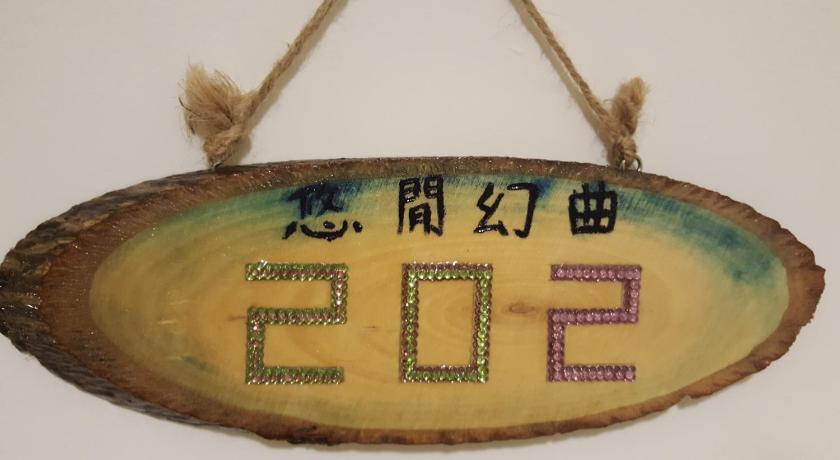 悠閒幻曲
202